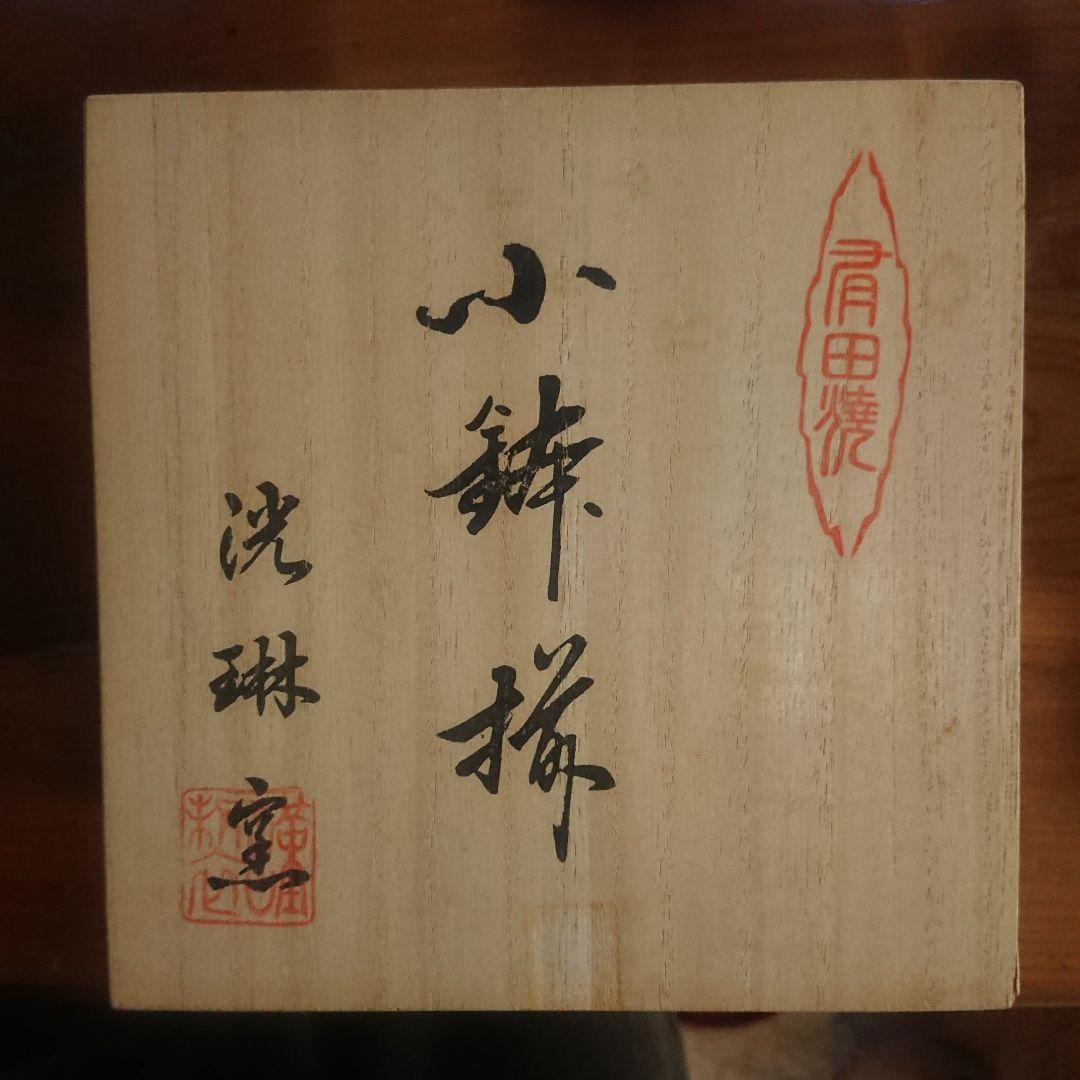 有田焼
小鉢揃
洸琳窯